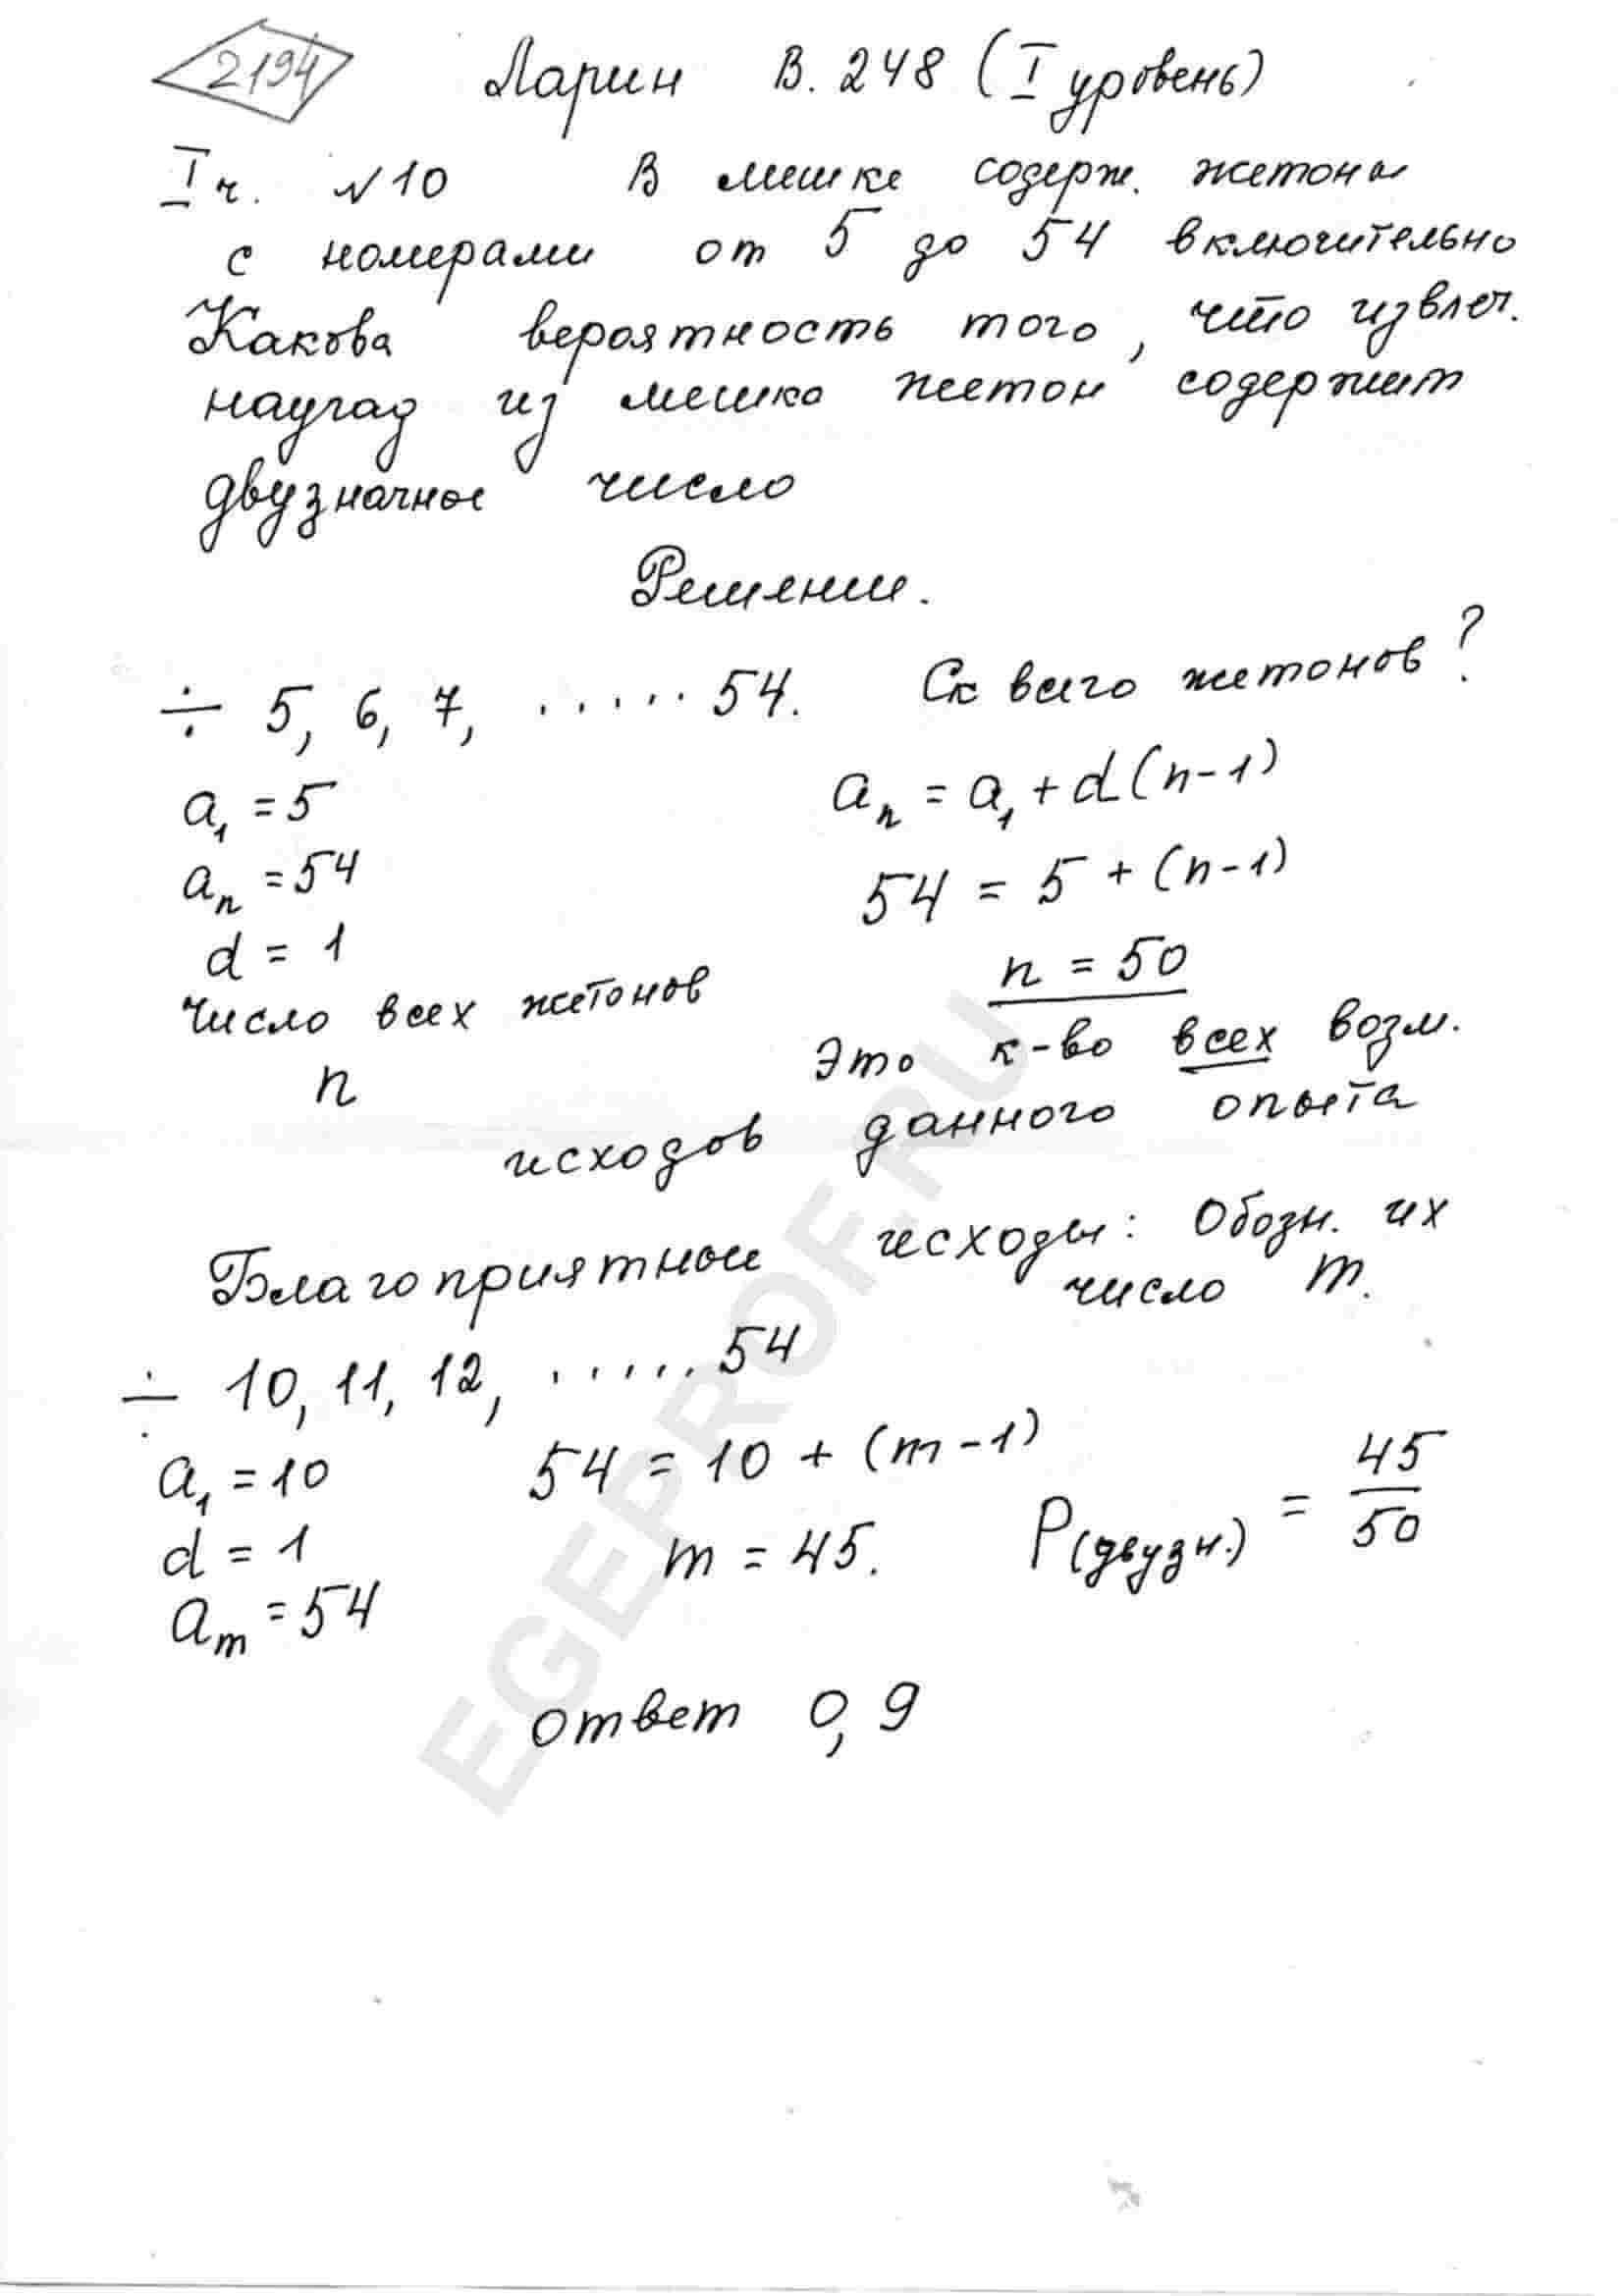 2194 Ларин В. 248 (I уровень)
I ч. №10 В мешке содерж. жетоны
с номерами от 5 до 54 включительно
Какова вероятность того, что извлеч.
наугад из мешка жетон содержит
двузначное число
Решение.
÷ 5, 6, 7, ..... 54. Ск всего жетонов?
a₁ = 5 aₙ = a₁ + d(n-1)
aₙ = 54 54 = 5 + (n-1)
d = 1 n = 50
число всех жетонов Это к-во всех возм.
n
исходов данного опыта
Благоприятные исходы: Обозн. их
число m.
÷ 10, 11, 12, ..... 54
a₁ = 10 54 = 10 + (m-1)
d = 1 m = 45. P(двузн.) = 45/50
aₘ = 54
ответ 0,9
EGEPROF.RU